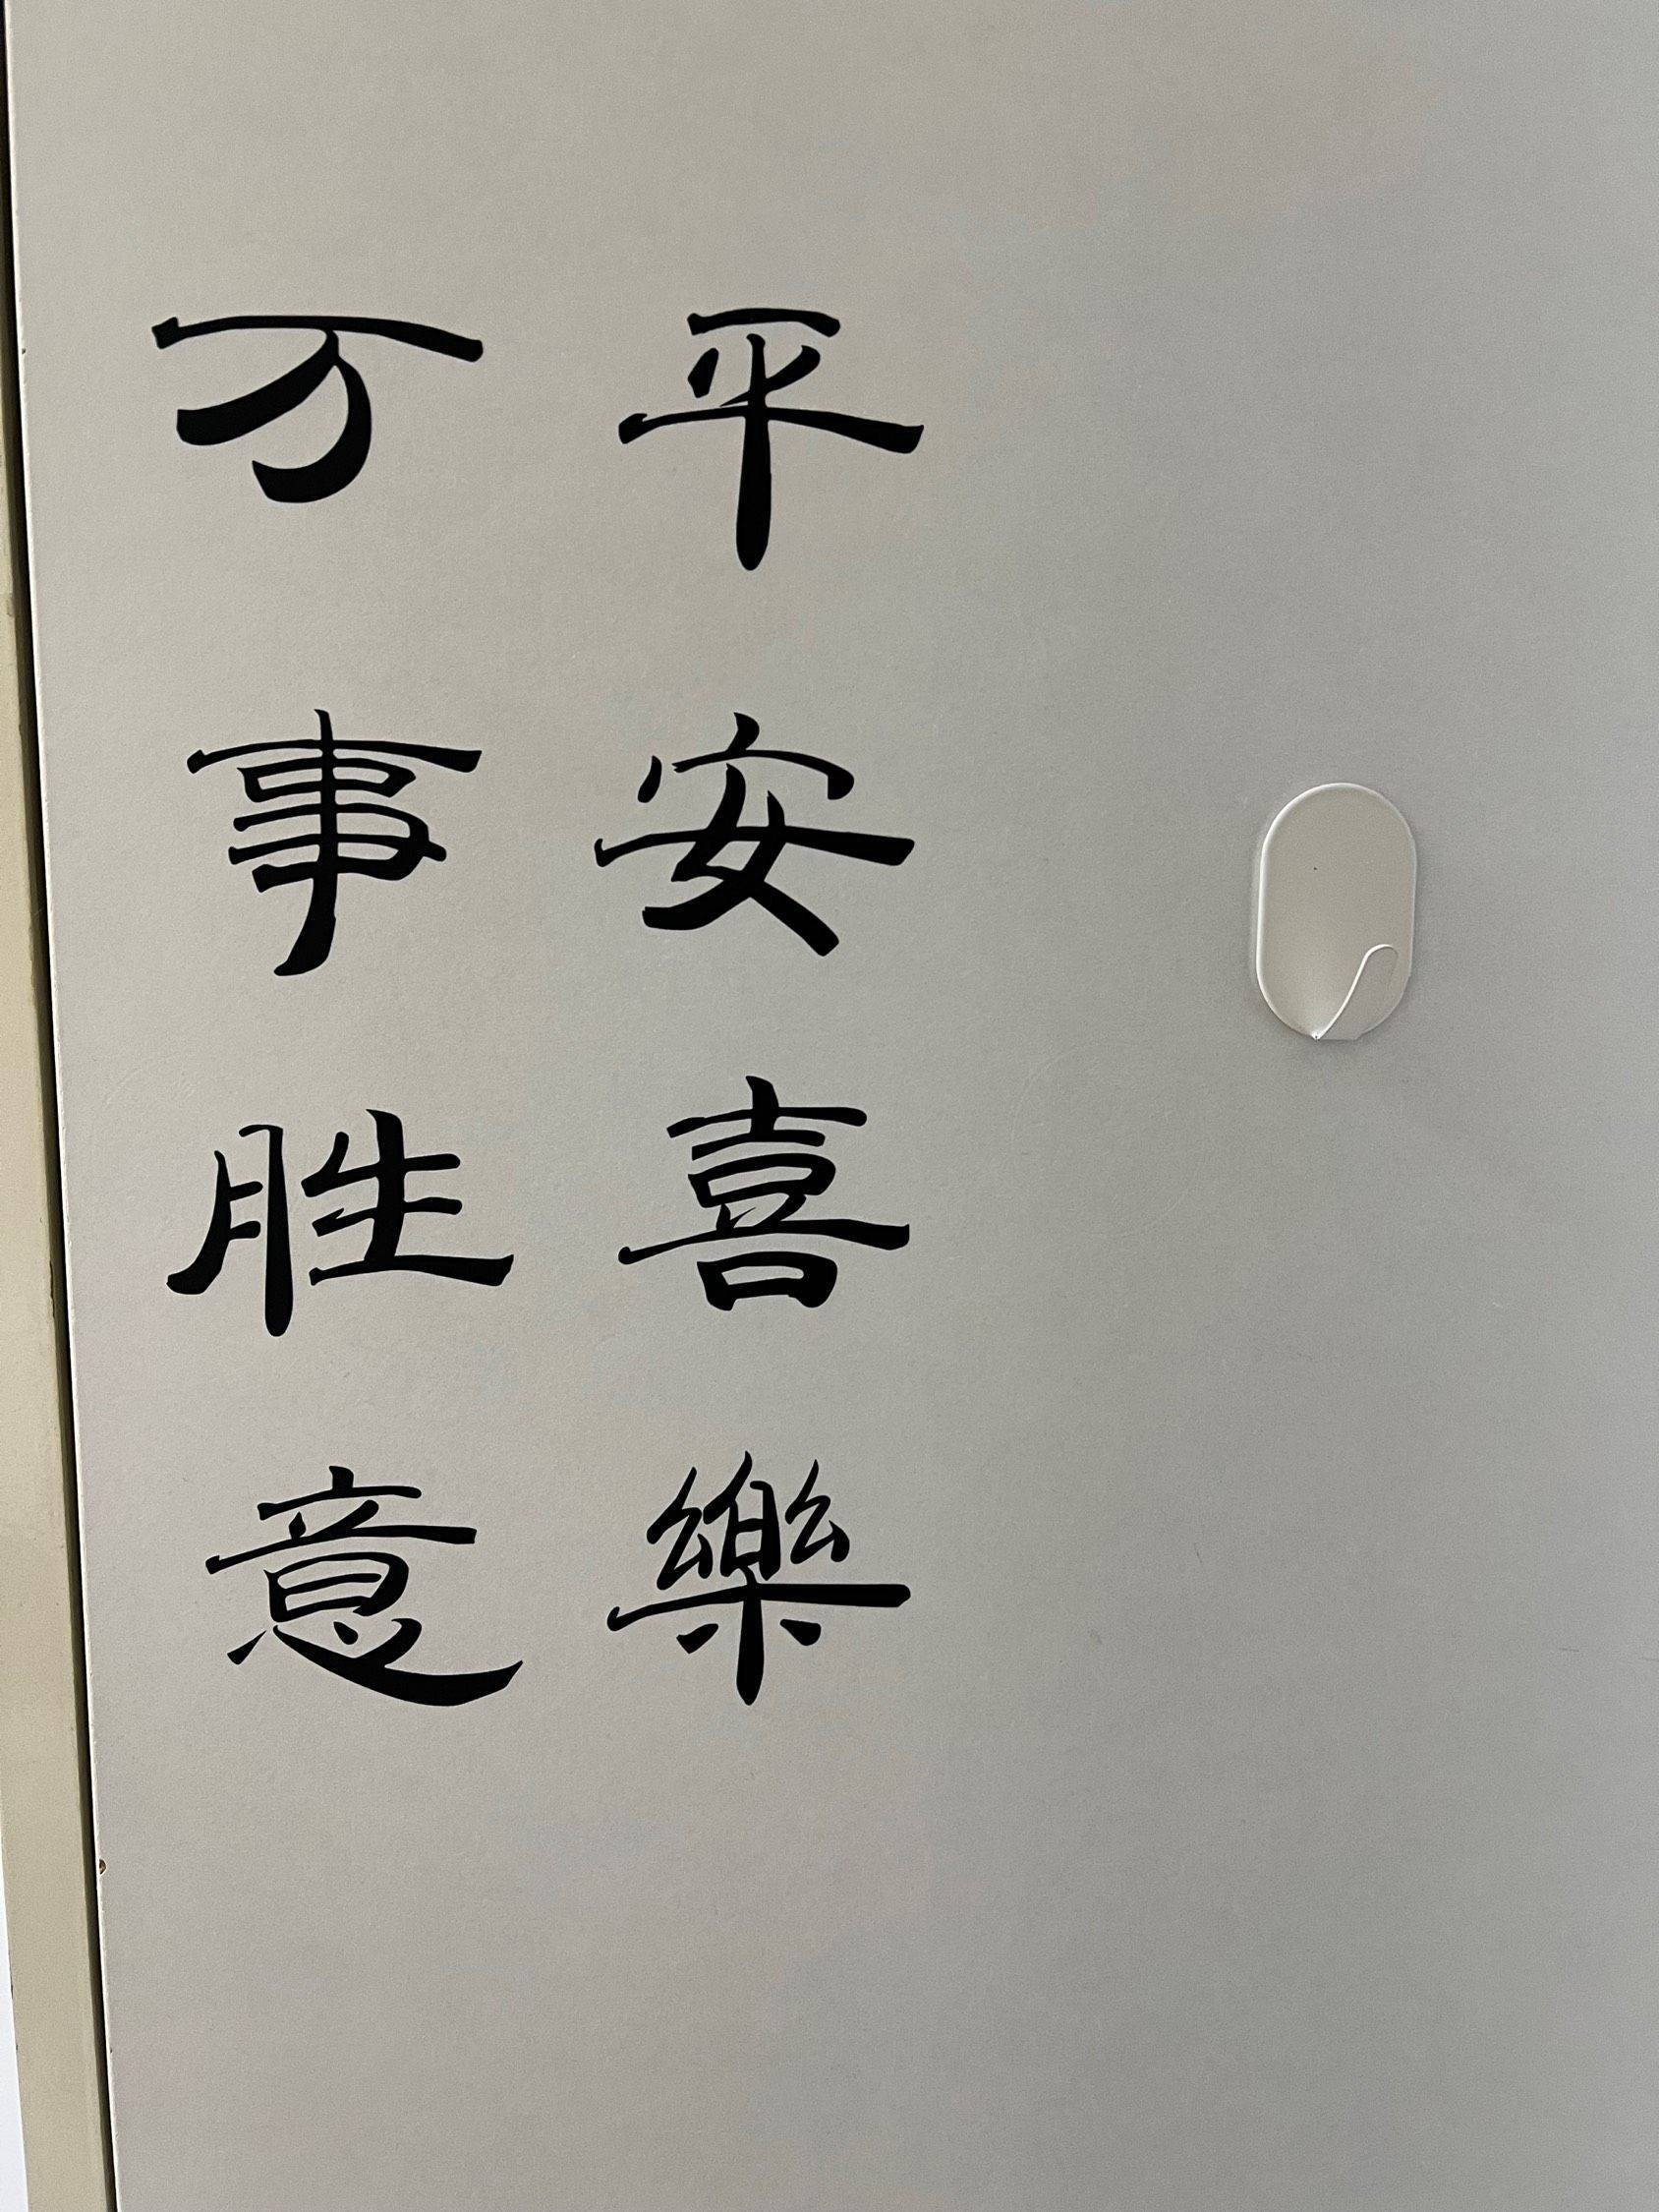 平安喜樂
万事胜意